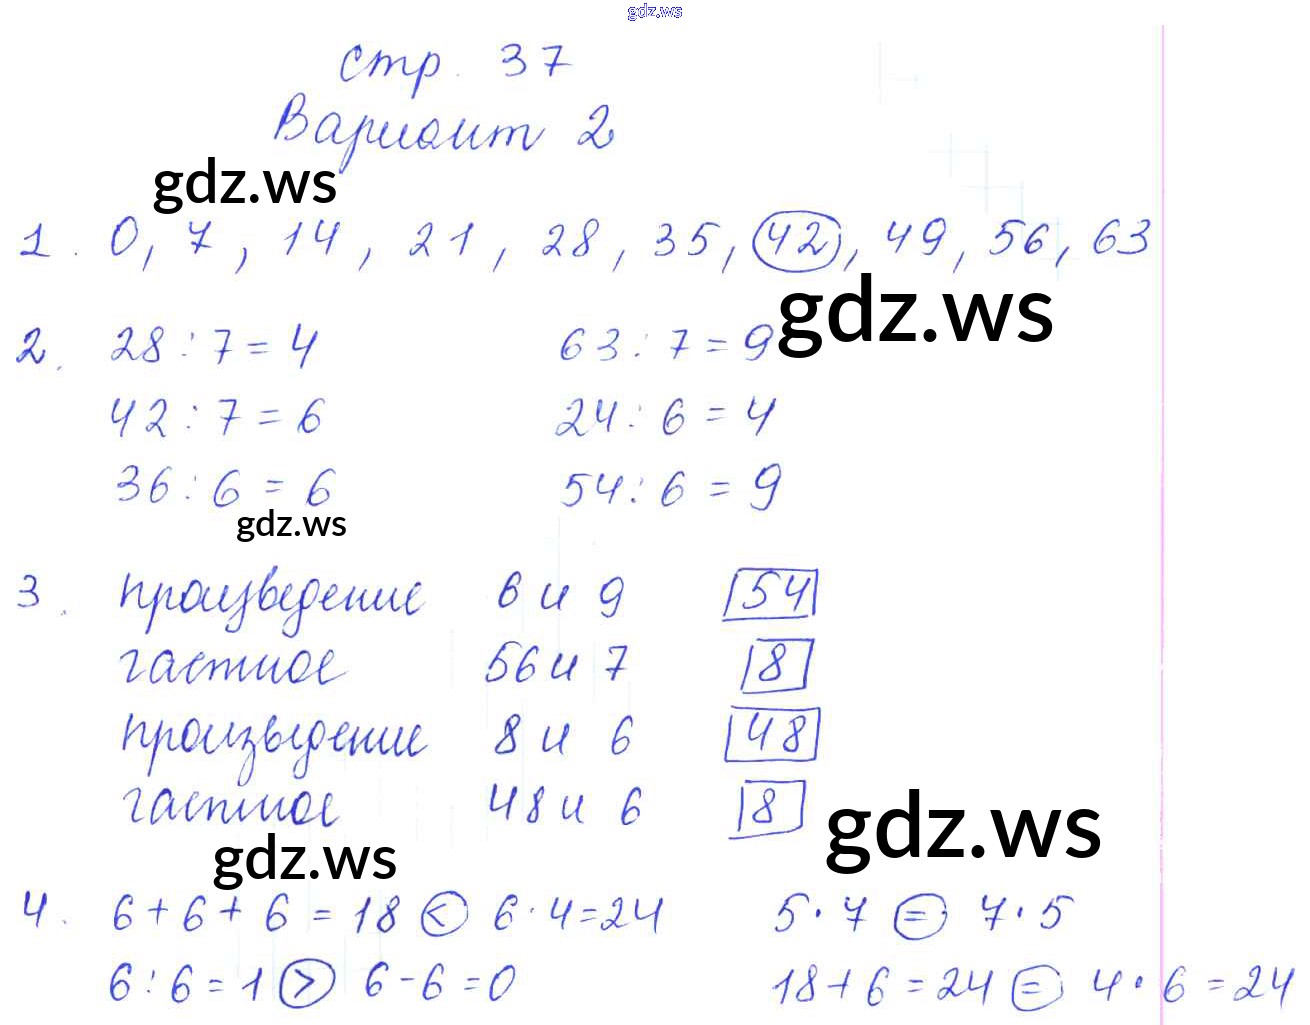 gdz.ws
стр. 37
Вариант 2
gdz.ws
1. 0, 7, 14, 21, 28, 35, 42, 49, 56, 63
gdz.ws
2. 28 : 7 = 4 63 : 7 = 9
42 : 7 = 6 24 : 6 = 4
36 : 6 = 6 54 : 6 = 9
gdz.ws
3. произведение 6 и 9 54
частное 56 и 7 8
произведение 8 и 6 48
частное 48 и 6 8
gdz.ws
gdz.ws
4. 6 + 6 + 6 = 18 < 6 · 4 = 24 5 · 7 = 7 · 5
6 : 6 = 1 > 6 - 6 = 0 18 + 6 = 24 = 4 · 6 = 24